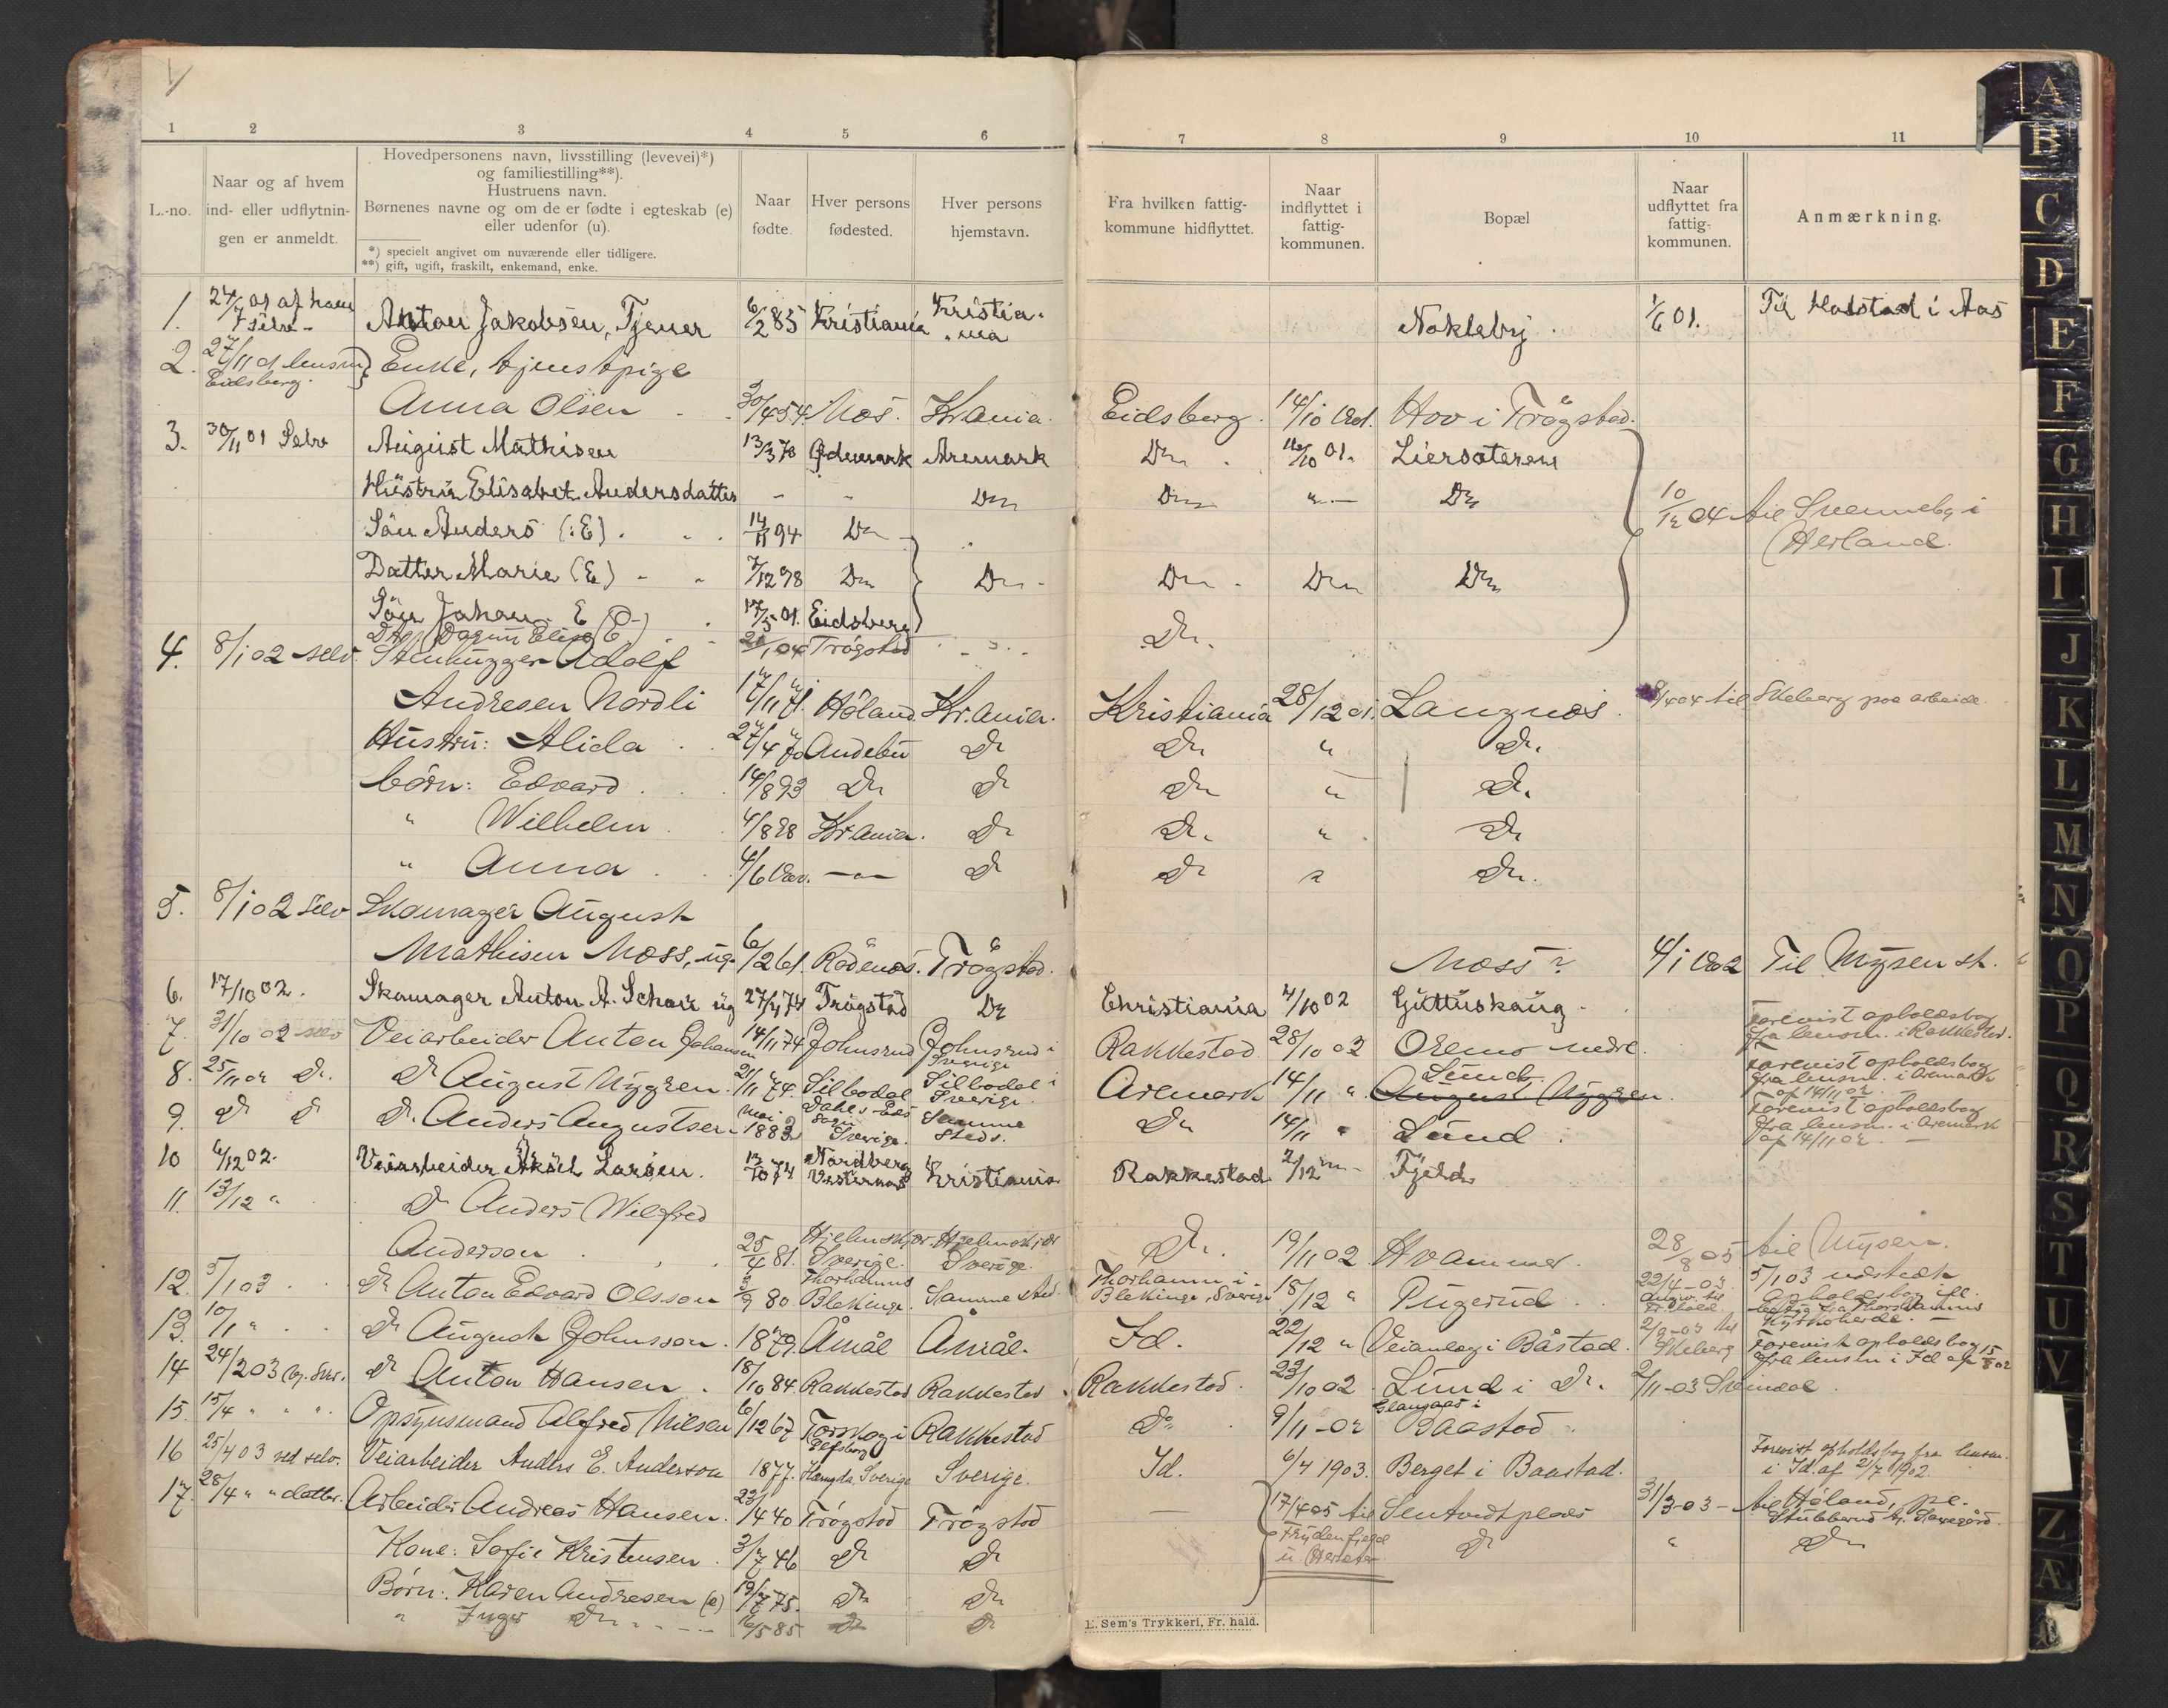 1
1 2 3 4 5 6 7 8 9 10 11
L.-no.
Naar og af hvem
ind- eller udflytnin-
gen er anmeldt.
Hovedpersonens navn, livsstilling (levevei)*)
og familiestilling**).
Hustruens navn.
Børnenes navne og om de er fødte i egteskab (e)
eller udenfor (u).
*) specielt angivet om nuværende eller tidligere.
**) gift, ugift, fraskilt, enkemand, enke.
Naar
fødte.
Hver persons
fødested.
Hver persons
hjemstavn.
Fra hvilken fattig-
kommune hidflyttet.
Naar
indflyttet i
fattig-
kommunen.
Bopæl
Naar
udflyttet fra
fattig-
kommunen.
Anmærkning.
1. 24/7 01 af ham Anton Jakobsen, Tjener 6/2 85 Kristiania Kristia- Nokleby 1/6 01. Til Holstad i Aas
selv - nia
2. 27/11 01 lensm Enke, tjenstpige
Eidsberg. Anna Olsen 30/4 54 Mos. Kr.ania. Eidsberg. 14/10 1901. Hov i Trøgstad.
3. 30/11 01 Selv August Mathisen 13/3 78 Ødemark Aremark Do 16/10 01. Liersæteren
Hustru Elisabet Andersdatter - - Do Do " - Do
Søn Anders (:E). 14/11 94 Do 10/12 04 til Svenneby i
Herland.
Datter Marie (E) 7/12 98 Do Do - Do - Do Do
Søn Johan E 17/5 01. Eidsberg
Dtr. Dagny Elise (E) 20/1 04 Trøgstad Do.
4. 8/1 02 selv. Stenhugger Adolf
Andresen Nordli 17/11 71. Høland. Kr.ania. Kristiania 28/12 01. Langnæs. 8/4 04 til Skeberg paa arbeide
Hustru: Alida 27/4 70 Andebu Do Do " Do.
børn: Edvard 14/8 93 Do Do Do " Do.
" Wilhelm 4/8 98 Kr.ania. Do Do. " Do
" Anna 4/6 1900. -"- Do Do " Do.
5. 8/1 02 selv Skomager August
Mathisen Moss, ug. 6/2 61. Rødenæs. Trøgstad. Moss ? 4/1 1902 Til Mysen st.
6. 17/10 02. Skomager Anton A. Schou ug 27/4 74 Trøgstad Do Christiania 4/10 02 Guttuskaug
7. 31/10 02 selv Veiarbeider Anton Johansen 14/11 74 Johnsrud Johnsrud i Rakkestad 28/10 02 Oremo nedre. Forevist opholdsbog
Sverige fra lensm. i Rakkestad.
8. 25/11 02 Do. Do August Nyggren. 21/11 74. Silbodal Silbodal i Aremark 14/11 " Lund August Nyggren. Forevist opholdsbog
Sverige. fra lensm. i Aremark
af 14/11 02.
9. Do Do Do. Anders Augustsen Mai 1883 Dahls-Eds Samme Do 14/11 " Lund. Forevist opholdsbog
sogn Sverige. Steds. fra lensm. i Aremark
af 14/11 02. -
10 6/12 02. Veiarbeider Aksel Larsen. 13/10 74 Nordberg Kristiania Rakkestad 2/12 Fjeld
11. 13/12 " Do Anders Wilfred
Anderson 25/4 81. Hjelmskjær Hjelmskjær Do. 19/11 02 Hvammer. 28/8 05 til Mysen.
Sverige. Sverige.
12. 5/1 03 Do Anton Edvard Olsson 3/9 80 Thorhamns Samme sted. Thorhamn i 18/12 " Pugerud 22/4-03 5/1 03
Blekinge. Blekinge, Sverige Fr.hald.
13. 10/1 " Do August Johnsson. 1879. Åmål Åmål. Id. 22/12 " Veianlæg i Båstad. 2/3-03 til Forevist opholdsbog
Skeberg fra lensm i Id af 15/8 02
14 24/2 03 Do Anton Hansen. 18/10 84. Rakkestad Rakkestad Rakkestad. 23/10 02 Lund i Do. 2/11-03 Svindal.
15. 15/4 " " " Opsynsmand Alfred Nilsen 6/12 67 Torskog i Rakkestad Do 9/11-02 Glausaas i
Elfsborg Baastad
16 25/4 03 ved selv. Veiarbeider Anders E. Anderson 1877. Sverige Sverige. Id. 6/4 1903. Berget i Baastad. Forevist opholdsbog fra lensm.
i Id. af 21/7 1902.
17. 28/4 " " datter. Arbeider Andreas Hansen. 23/4 40 Trøgstad Trøgstad - 17/4 05 til 31/3-03 - til Høland, pl.
Frydenfjeld Stubberud
Kone: Sofie Kristensen 3/7 46 Do Do Do " Do
Børn: Karen Andresen (e) 19/7 75. Do Do
" Inga Do 16/5 85 Do Do
E. Sem's Trykkeri, Fr. hald.
A
B
C
D
E
F
G
H
I
J
K
L
M
N
O
P
Q
R
S
T
U
V
Z
Æ